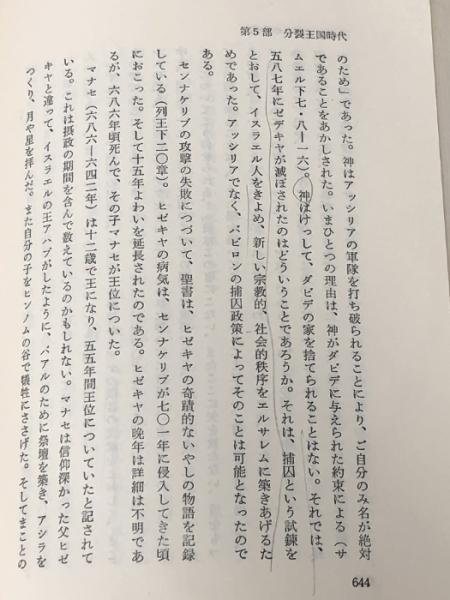 第5部　分裂王国時代
のため」であった。神はアッシリアの軍隊を打ち破られることにより、ご自分のみ名が絶対
であることをあかしされた。いまひとつの理由は、神がダビデに与えられた約束による（サ
ムエル下七・八―一六）。神はけっして、ダビデの家を捨てられることはない。それでは、
五八七年にゼデキヤが滅ぼされたのはどういうことであろうか。それは、捕囚という試錬を
とおして、イスラエル人をきよめ、新しい宗教的、社会的秩序をエルサレムに築きあげるた
めであった。アッシリアでなく、バビロンの捕囚政策によってそのことは可能となったので
ある。
センナケリブの攻撃の失敗につづいて、聖書は、ヒゼキヤの奇蹟的ないやしの物語を記録
している（列王下二〇章）。ヒゼキヤの病気は、センナケリブが七〇一年に侵入してきた頃
におこった。そして十五年よわいを延長されたのである。ヒゼキヤの晩年は詳細は不明であ
るが、六八六年頃死んで、その子マナセが王位についた。
マナセ（六八六―六四二年）は十二歳で王になり、五五年間王位についていたと記されて
いる。これは摂政の期間を含んで数えているのかもしれない。マナセは信仰深かった父ヒゼ
キヤと違って、イスラエルの王アハブがしたように、バアルのために祭壇を築き、アシラを
つくり、月や星を拝んだ。また自分の子をヒンノムの谷で犠牲にささげた。そしてまことの
644